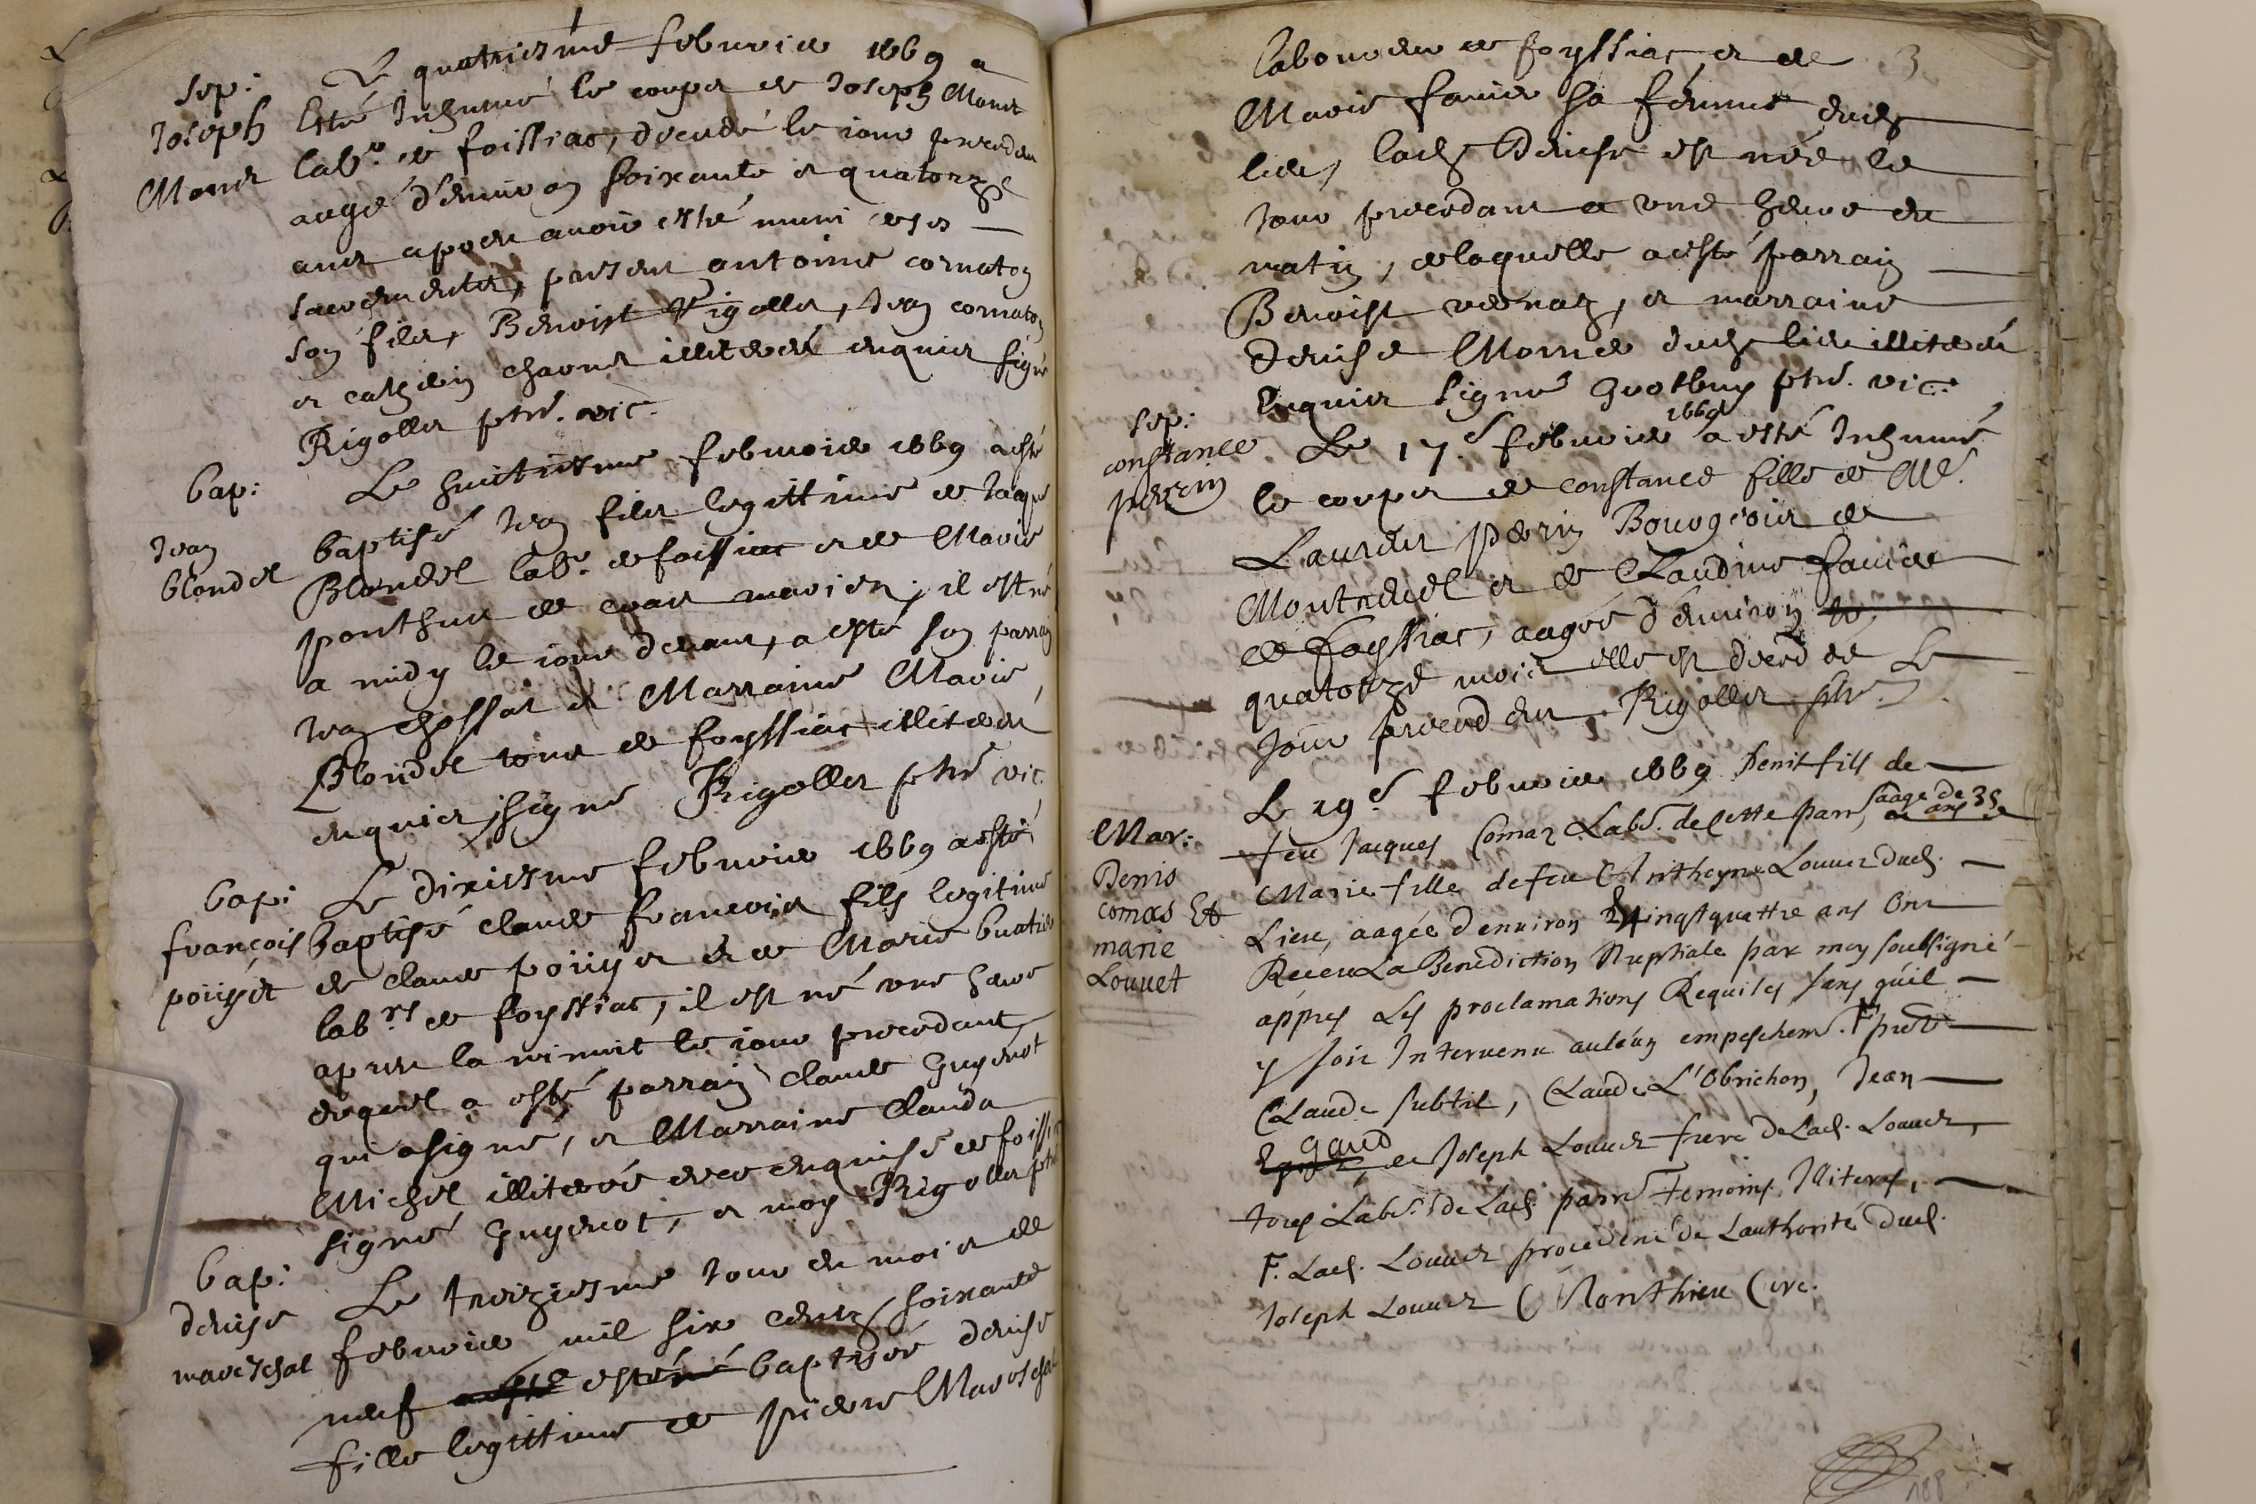 sep:
Joseph
Monet
Le quatriesme febvrier 1669 a
esté Inhumé le corps de Joseph Monet
labr. de foissiac, decedé le jour precedent
aagé d'environ soixante et quatorze
ans apres avoir esté muni de ses
sacrements, present antoine cornaton
son fils, Benoist Rigollet, Jean cornaton
et cathein chavnet illiterés enquis signé
Rigollet ptre. vic.
bap:
Jean
blondel
Le huitiesme febvrier 1669 a esté
baptisé Jean fils legittime de Jaque
Blondel labr. de foissiac et de Marie
ponthus de cras mariés; il est né
a midy le jour devant, a esté son parrain
Jean chossat et Marraine Marie
Blondel tous de foyssiac illiterés
enquis, signé Rigollet ptre vic.
bap:
françois
poüyet
Le dixiesme febvrier 1669 a esté
baptisé claude francois fils legitime
de claude poüyet et de Marie buatier
labrs de foyssiac, il est né une heure
apres la minuit le jour precedant
duquel a esté parrain claude Guyenot
qui a signé, et Marraine Clauda
Michel illiterée de ce enquise de foissiac
signé Guyenot, et moy Rigollet ptre
bap:
denise
mareschal
Le treiziesme jour du mois de
febvrier mil six cents soixante
neuf a esté esté né baptisée denise
fille legittime de pierre Mareschal
3
laboureur de foyssiac et de
Marie favier sa femme dudt
lieu, ladte Denise est née le
Jour precedant a une heure du
matin, de laquelle a esté parrain
Benoist vernaz, et marraine
Denise Morne dudt lieu illiterés
Enquis signé ptre. vic.
sep:
constance
perrin
Le 17e febvrier 1669 a esté Inhumé
le corps de constance fille de Me.
Laurens perrin Bourgeois de
Montrevel et de Claudine favier
de foyssiac, aagée d'environ
quatorze mois elle est decedée Le
Jour precedent. Rigollet ptre.
Mar:
Denis
comas Et
marie
Louvet
Le 19e febvrier 1669 Denit fils de
feu Jacques Comaz Labr. de Cette parr, aagé de 35 ans
Marie fille de feu Anthoyne Louvet dud.
Lieu, aagée denviron Vingtquattre ans Ont
Receu La Benediction Nuptiale par moy soubsigné
appres Les proclamations Requises sans qu'il
y soit Intervenu aulcun empeschem. F. pnt
Claude subtil, Claude L'Obrichon, Jean
gaud et Joseph Louvet frere de Lad. Louvet,
tous Labr. de Lad. parre temoins Illiters,
F. Lad. Louvet procedene de Lauthorité dud.
Joseph Louvet C Monthieu Cure.
188